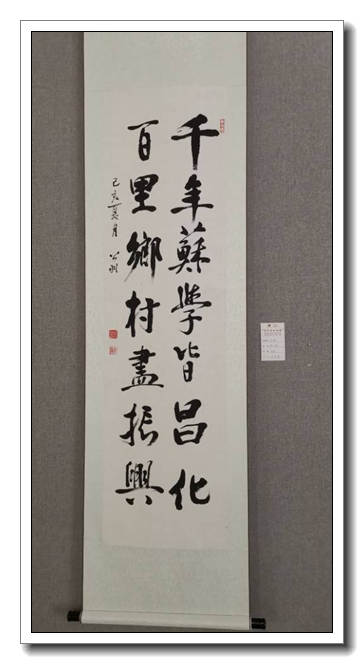 千年蘇學皆昌化
百里鄉村盡振興
己亥夏月